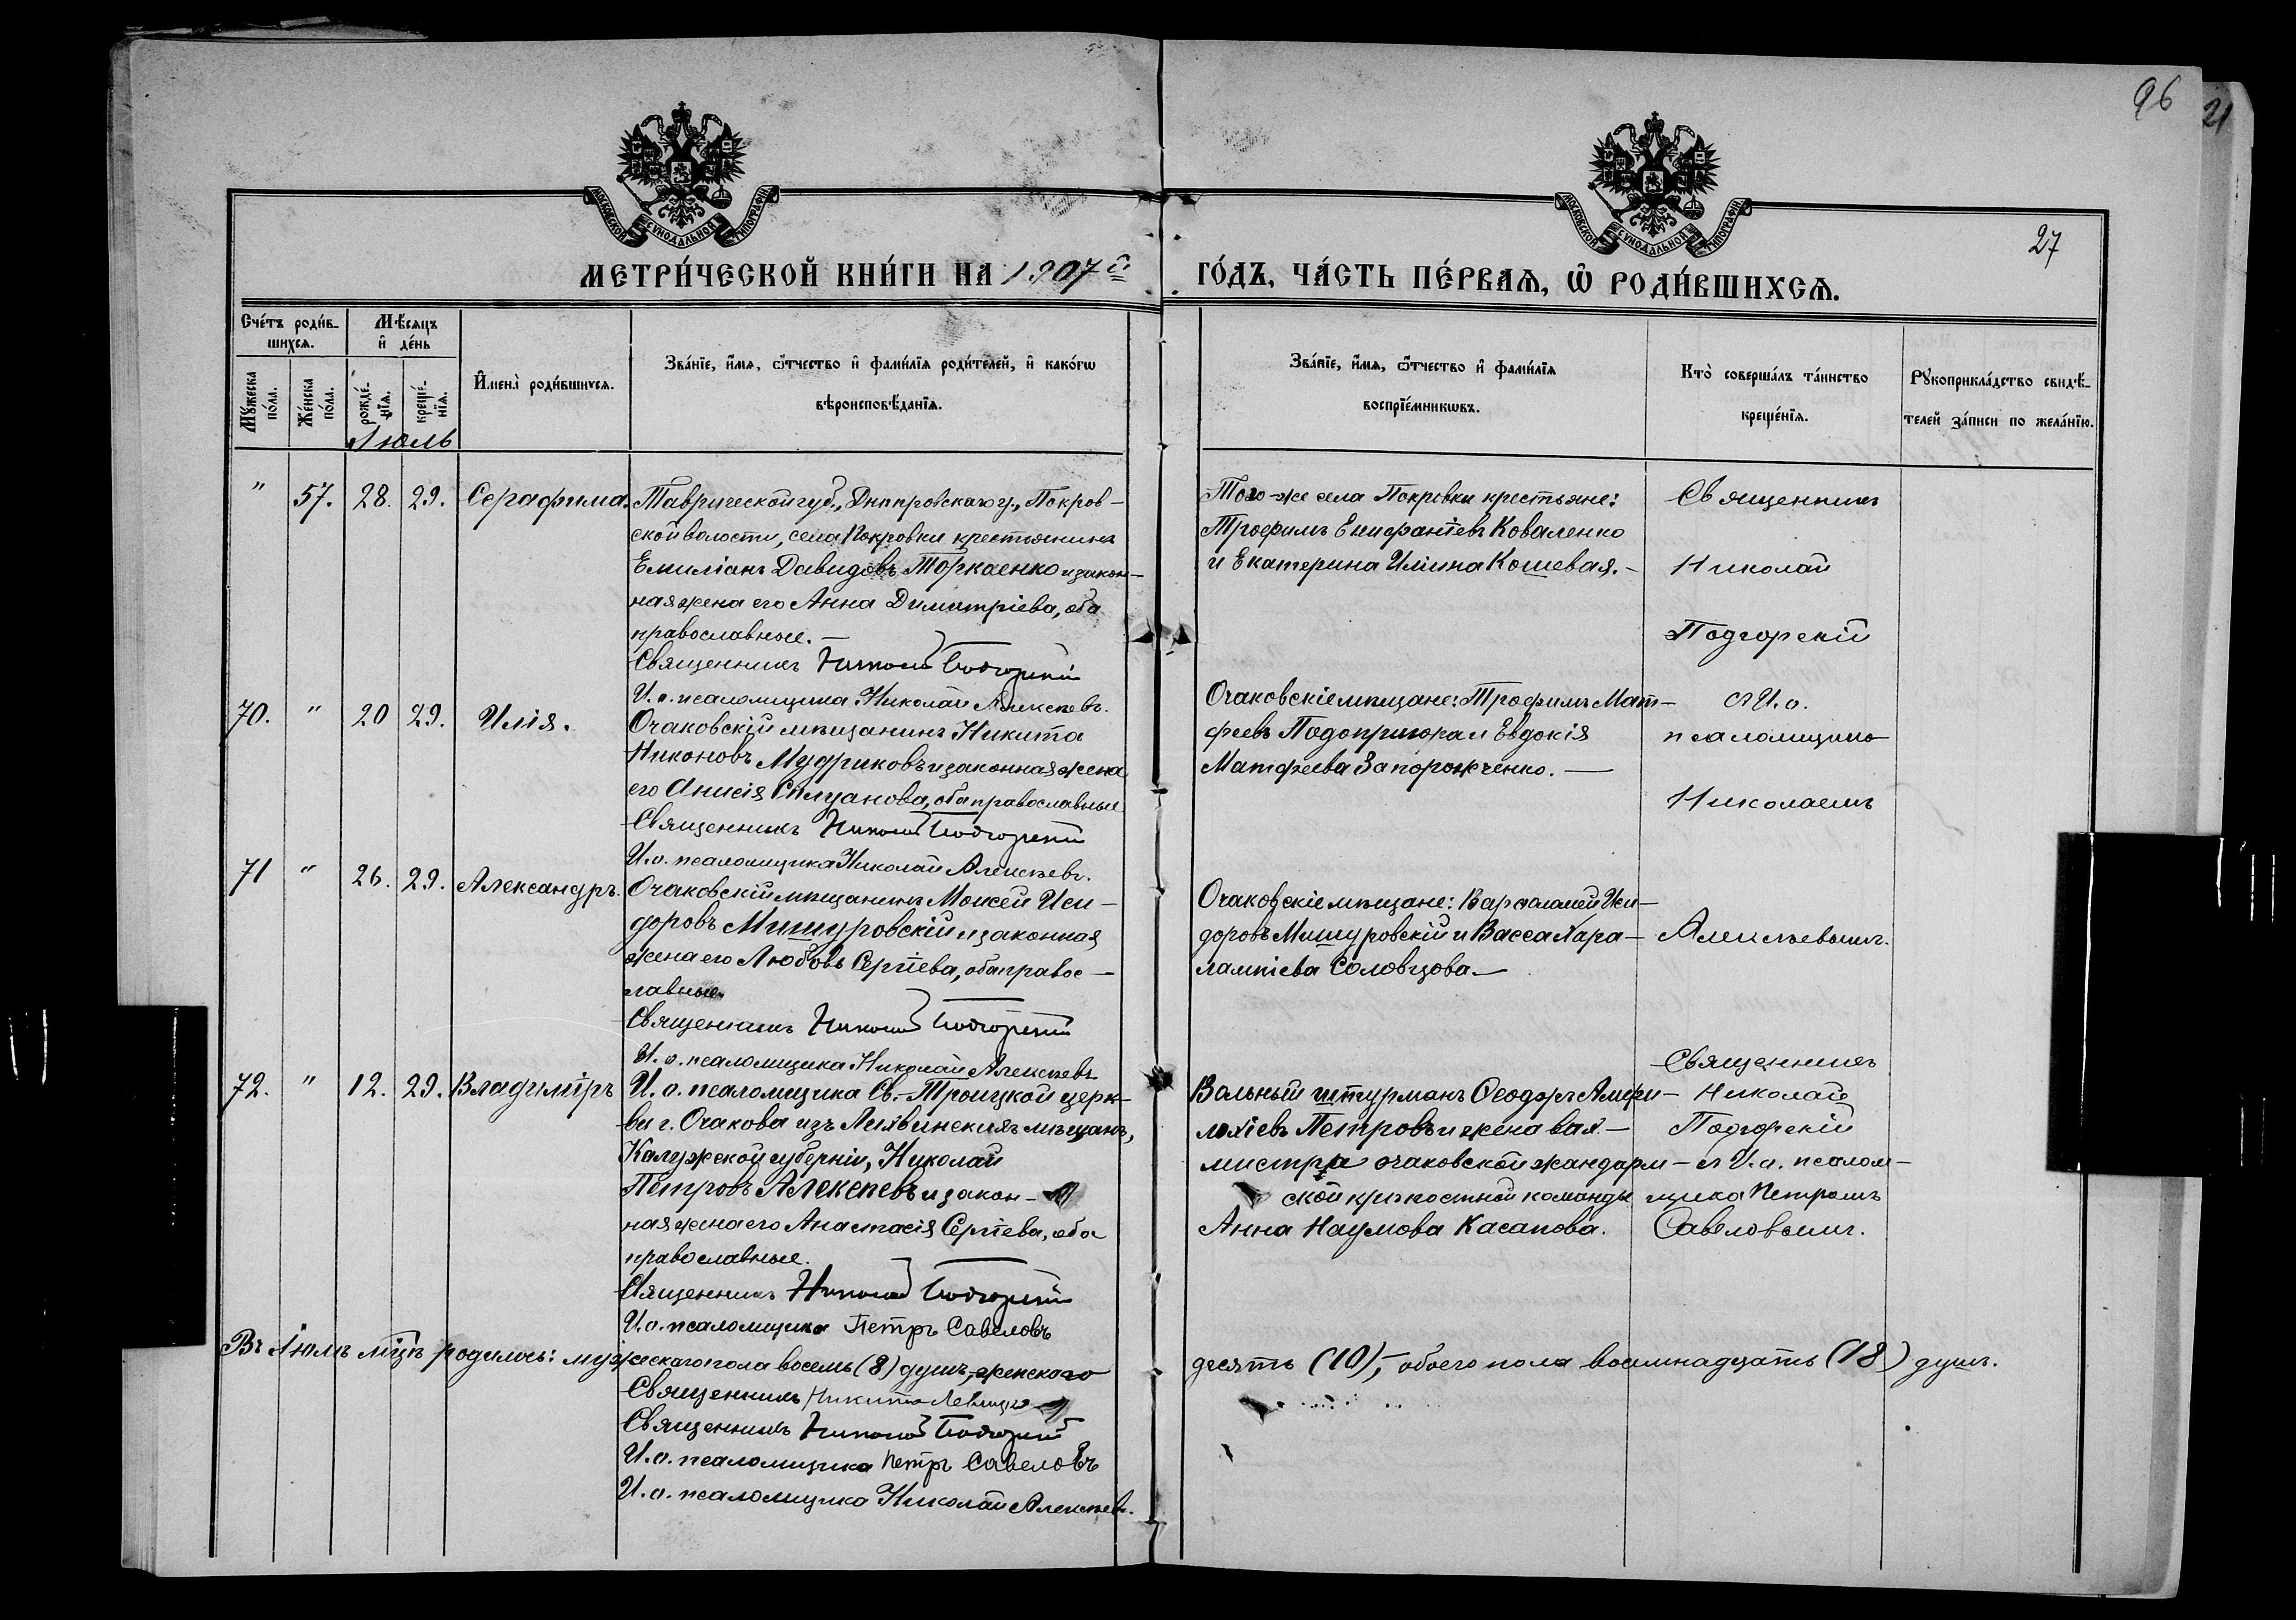 96
21
27
МОСКОВСКОЙ СѴНОДАЛЬНОЙ ТИПОГРАФІИ
МОСКОВСКОЙ СѴНОДАЛЬНОЙ ТИПОГРАФІИ
МЕТРИ́ЧЕСКОЙ КНИ́ГИ НА 1907й
ГО́ДЪ, ЧА́СТЬ ПЕ́РВАѦ, Ѽ РОДИ́ВШИХСѦ.
Сче́тъ роди́в-
шихсѧ.
Мѣ́сѧцъ
и҆ де́нь
Мꙋ́жеска
по́ла.
Же́нска
по́ла.
рожде́-
нїѧ.
креще́-
нїѧ.
И҆мена̀ роди́вшихсѧ.
Зва́нїе, и҆́мѧ, ѻ҆́тчество и҆ фами́лїѧ роди́телей, и҆ како́гѡ
вѣроисповѣ́данїѧ.
Зва́нїе, и҆́мѧ, ѻ҆́тчество и҆ фами́лїѧ
воспрїе́мникѡвъ.
Кто̀ соверша́лъ та́инство
креще́нїѧ.
Рꙋкоприкла́дство свидѣ́-
телей за́писи по жела́нїю.
Іюль
" 57. 28. 29. Серафима. Таврической губ., Днѣпровскаго у., Покров-
ской волости, села Покровки крестьянинъ
Емиліанъ Давидовъ Торкаенко и закон-
ная жена его Анна Димитріева, оба
православные. —
Священникъ Николай Подгорскій
И. о. псаломщика Николай Алексѣевъ.
Того-же села Покровки крестьяне:
Трофимъ Епифаніевъ Коваленко
и Екатерина Иліина Кошевая. —
Священникъ
Николай
Подгорскій
70. " 20 29. Илія. Очаковскій мѣщанинъ Никита
Никоновъ Мудриковъ и законная жена
его Анисія Силуанова, оба православные
Священникъ Николай Подгорскій
И. о. псаломщика Николай Алексѣевъ.
Очаковскіе мѣщане: Трофимъ Мат-
феевъ Подопригора и Евдокія
Матфеева Запорожченко. —
съ И. о.
псаломщика
Николаемъ
71 " 26. 29. Александръ. Очаковскій мѣщанинъ Моисей Иси-
доровъ Мишуровскій и законная
жена его Любовь Сергіева, оба правос-
лавные.
Священникъ Николай Подгорскій
И. о. псаломщика Николай Алексѣевъ
Очаковскіе мѣщане: Варѳоломей Иси-
доровъ Мишуровскій и Васса Хара-
лампіева Соловцова —
Алексѣевымъ.
72. " 12. 29. Владиміръ И. о. псаломщика Св.-Троицкой церк-
ви г. Очакова изъ Лихвинскихъ мѣщанъ,
Калужской губерніи, Николай
Петровъ Алексѣевъ и закон-
ная жена его Анастасія Сергіева, оба
православные.
Священникъ Николай Подгорскій
И. о. псаломщика Петръ Савеловъ
Вольный штурманъ Ѳеодоръ Амфи-
лохіевъ Петровъ и жена вах-
мистра очаковской жандарм-
ской крѣпостной команды
Анна Наумова Касапова.
Священникъ
Николай
Подгорскій
съ И. о. псалом-
щика Петромъ
Савеловымъ.
Въ Іюлѣ мѣцѣ родилось: мужескаго пола восемь (8) душъ, женскаго
десять (10), — обоего пола восемнадцать (18) душъ.
Священникъ Никита
Священникъ Николай Подгорскій
И. о. псаломщика Петръ Савеловъ
И. о. псаломщика Николай Алексѣевъ.